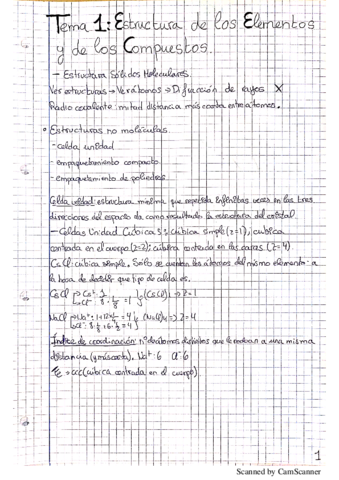 Tema 1: Estructura de los Elementos
y de los Compuestos.
- Estructura Sólidos Moleculares
Ver estructuras → Ver átomos → Difracción de rayos X
Radio covalente: mitad distancia más corta entre átomos.
• Estructuras no moléculas.
- celda unidad
- empaquetamiento compacto
- empaquetamiento de poliedros
Celda unidad: estructura mínima que repetida infinitas veces en las tres
direcciones del espacio da como resultado la estructura del cristal.
- Celdas Unidad Cúbicas: cúbica simple (z=1); cúbica
centrada en el cuerpo (z=2); cúbica centrada en las caras (z=4)
CsCl: cúbica simple. Sólo se cuentan los átomos del mismo elemento a
la hora de decidir que tipo de celda es.
CsCl Cs+: 1 Cl-: 8·1/8 = 1 (CsCl) → Z=1
NaCl Na+: 1+12·1/4 = 4 Cl-: 8·1/8+6·1/2=4 (NaCl)4 => Z=4
Índice de coordinación: nº de átomos distintos que le rodean a una misma
distancia (y más corta). Na+: 6 Cl-: 6
Fe = ccc (cúbica centrada en el cuerpo)
1
Scanned by CamScanner